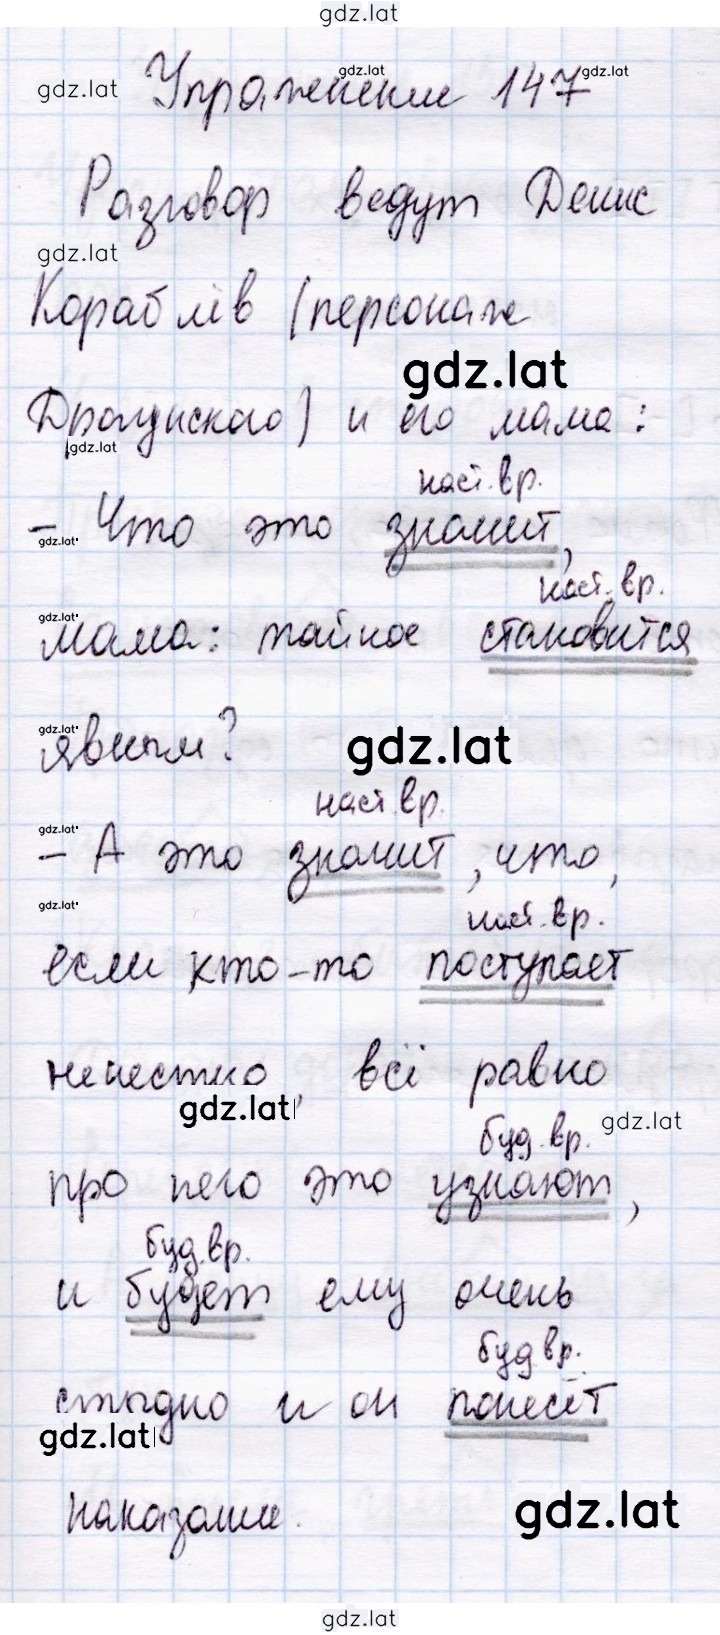 gdz.lat
gdz.lat Упражнение gdz.lat 147 gdz.lat
Разговор ведут Денис
gdz.lat
Кораблёв (персонаж
gdz.lat
Драгунского) и его мама:
gdz.lat
наст. вр.
– Что это значит,
gdz.lat
наст. вр.
gdz.lat
мама: тайное становится
gdz.lat
явным? gdz.lat
наст. вр.
gdz.lat
– А это значит, что,
gdz.lat
наст. вр.
если кто-то поступает
нечестно, всё равно
gdz.lat
буд. вр. gdz.lat
про него это узнают,
буд. вр.
и будет ему очень
буд вр.
стыдно и он понесёт
gdz.lat
наказание. gdz.lat
gdz.lat